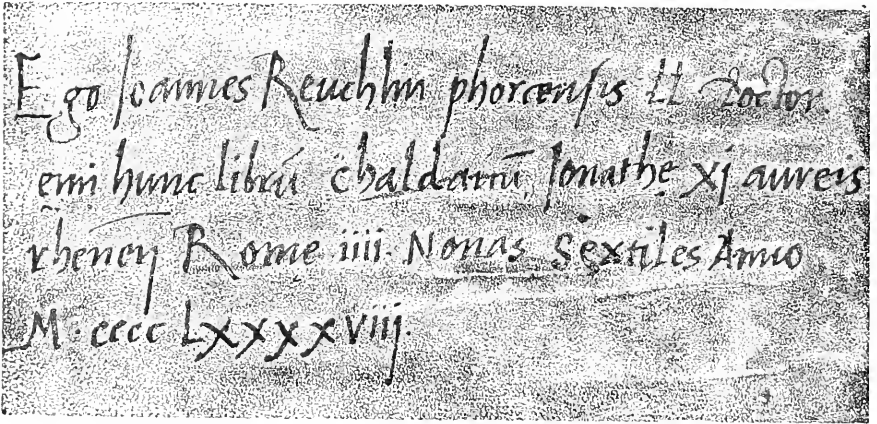 Ego Joannes Reuchlin phorcensis LL Doctor
emi hunc librū chaldaicū Jonathę xj aureis
rhenen̄ Romę iiii. Nonas Sextiles Anno
M. cccc Lxxxxviij.